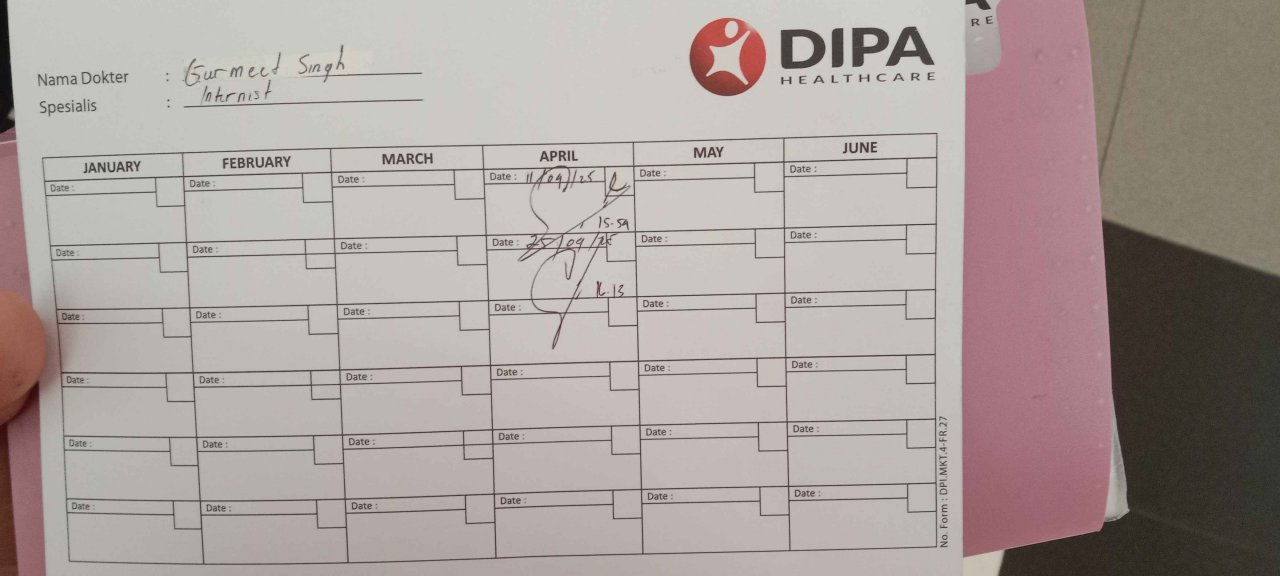 DIPA
HEALTHCARE
RE
Nama Dokter : Gurmeet Singh
Spesialis : Internist
JANUARY FEBRUARY MARCH APRIL MAY JUNE
Date : Date : Date : Date : 11/04/25 Date : Date :
15.59
Date : Date : Date : Date : 25/04/25 Date : Date :
16.13
Date : Date : Date : Date : Date : Date :
Date : Date : Date : Date : Date : Date :
Date : Date : Date : Date : Date : Date :
Date : Date : Date : Date : Date : Date :
No. Form : DPI.MKT.4-FR.27